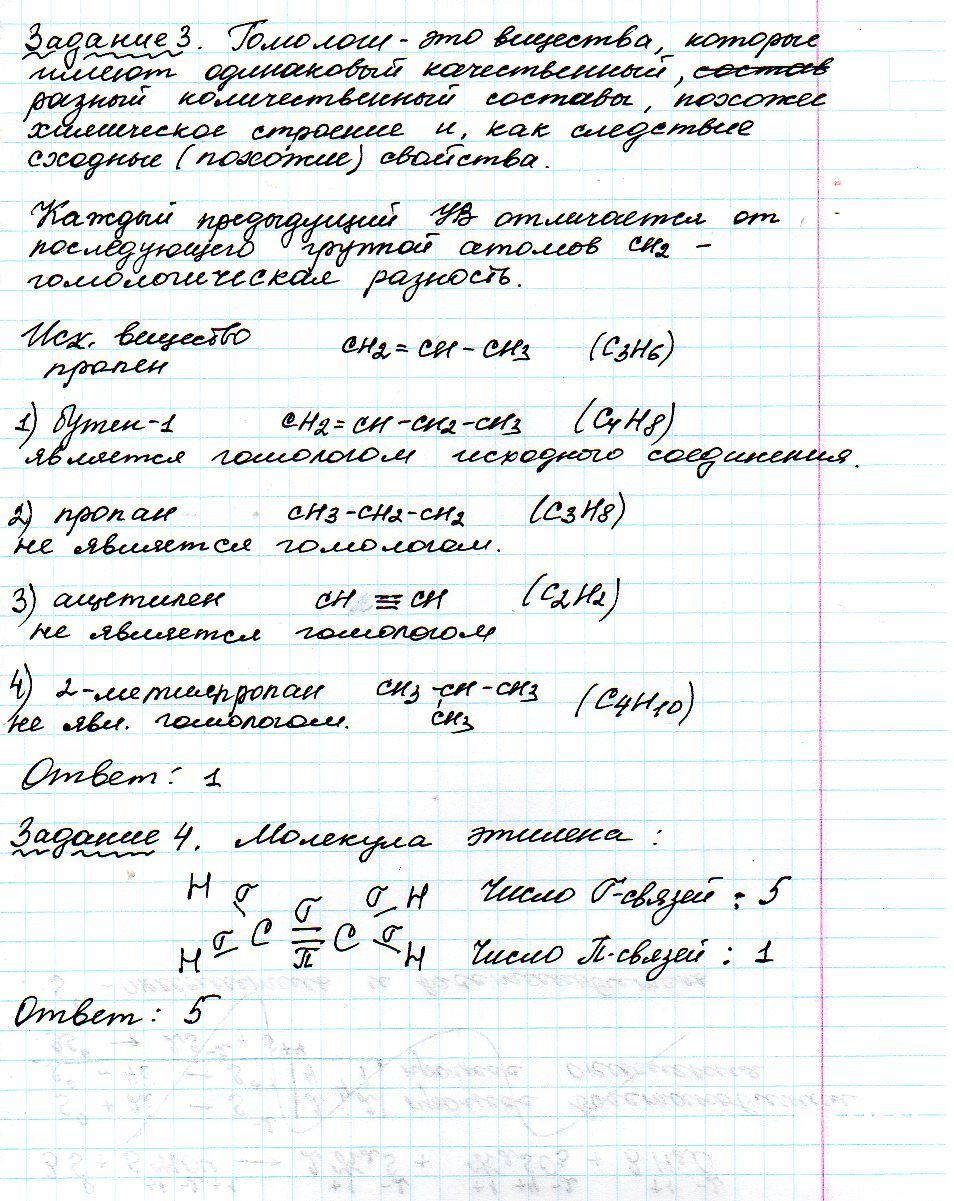 Задание 3. Гомологи - это вещества, которые
имеют одинаковый качественный, состав
разный количественный составы, похожее
химическое строение и, как следствие
сходные (похожие) свойства.
Каждый предыдущий УВ отличается от
последующего группой атомов CH2 -
гомологическая разность.
Исх. вещество
пропен
CH2 = CH - CH3 (C3H6)
1) бутен-1 CH2 = CH - CH2 - CH3 (C4H8)
является гомологом исходного соединения.
2) пропан CH3 - CH2 - CH2 (C3H8)
не является гомологом.
3) ацетилен CH ≡ CH (C2H2)
не является гомологом
4) 2-метилпропан CH3 - CH - CH3 (C4H10)
не явл. гомологом. CH3
Ответ: 1
Задание 4. Молекула этилена:
H σ σ σ H Число σ-связей: 5
H σ C π C σ H Число П-связей: 1
Ответ: 5